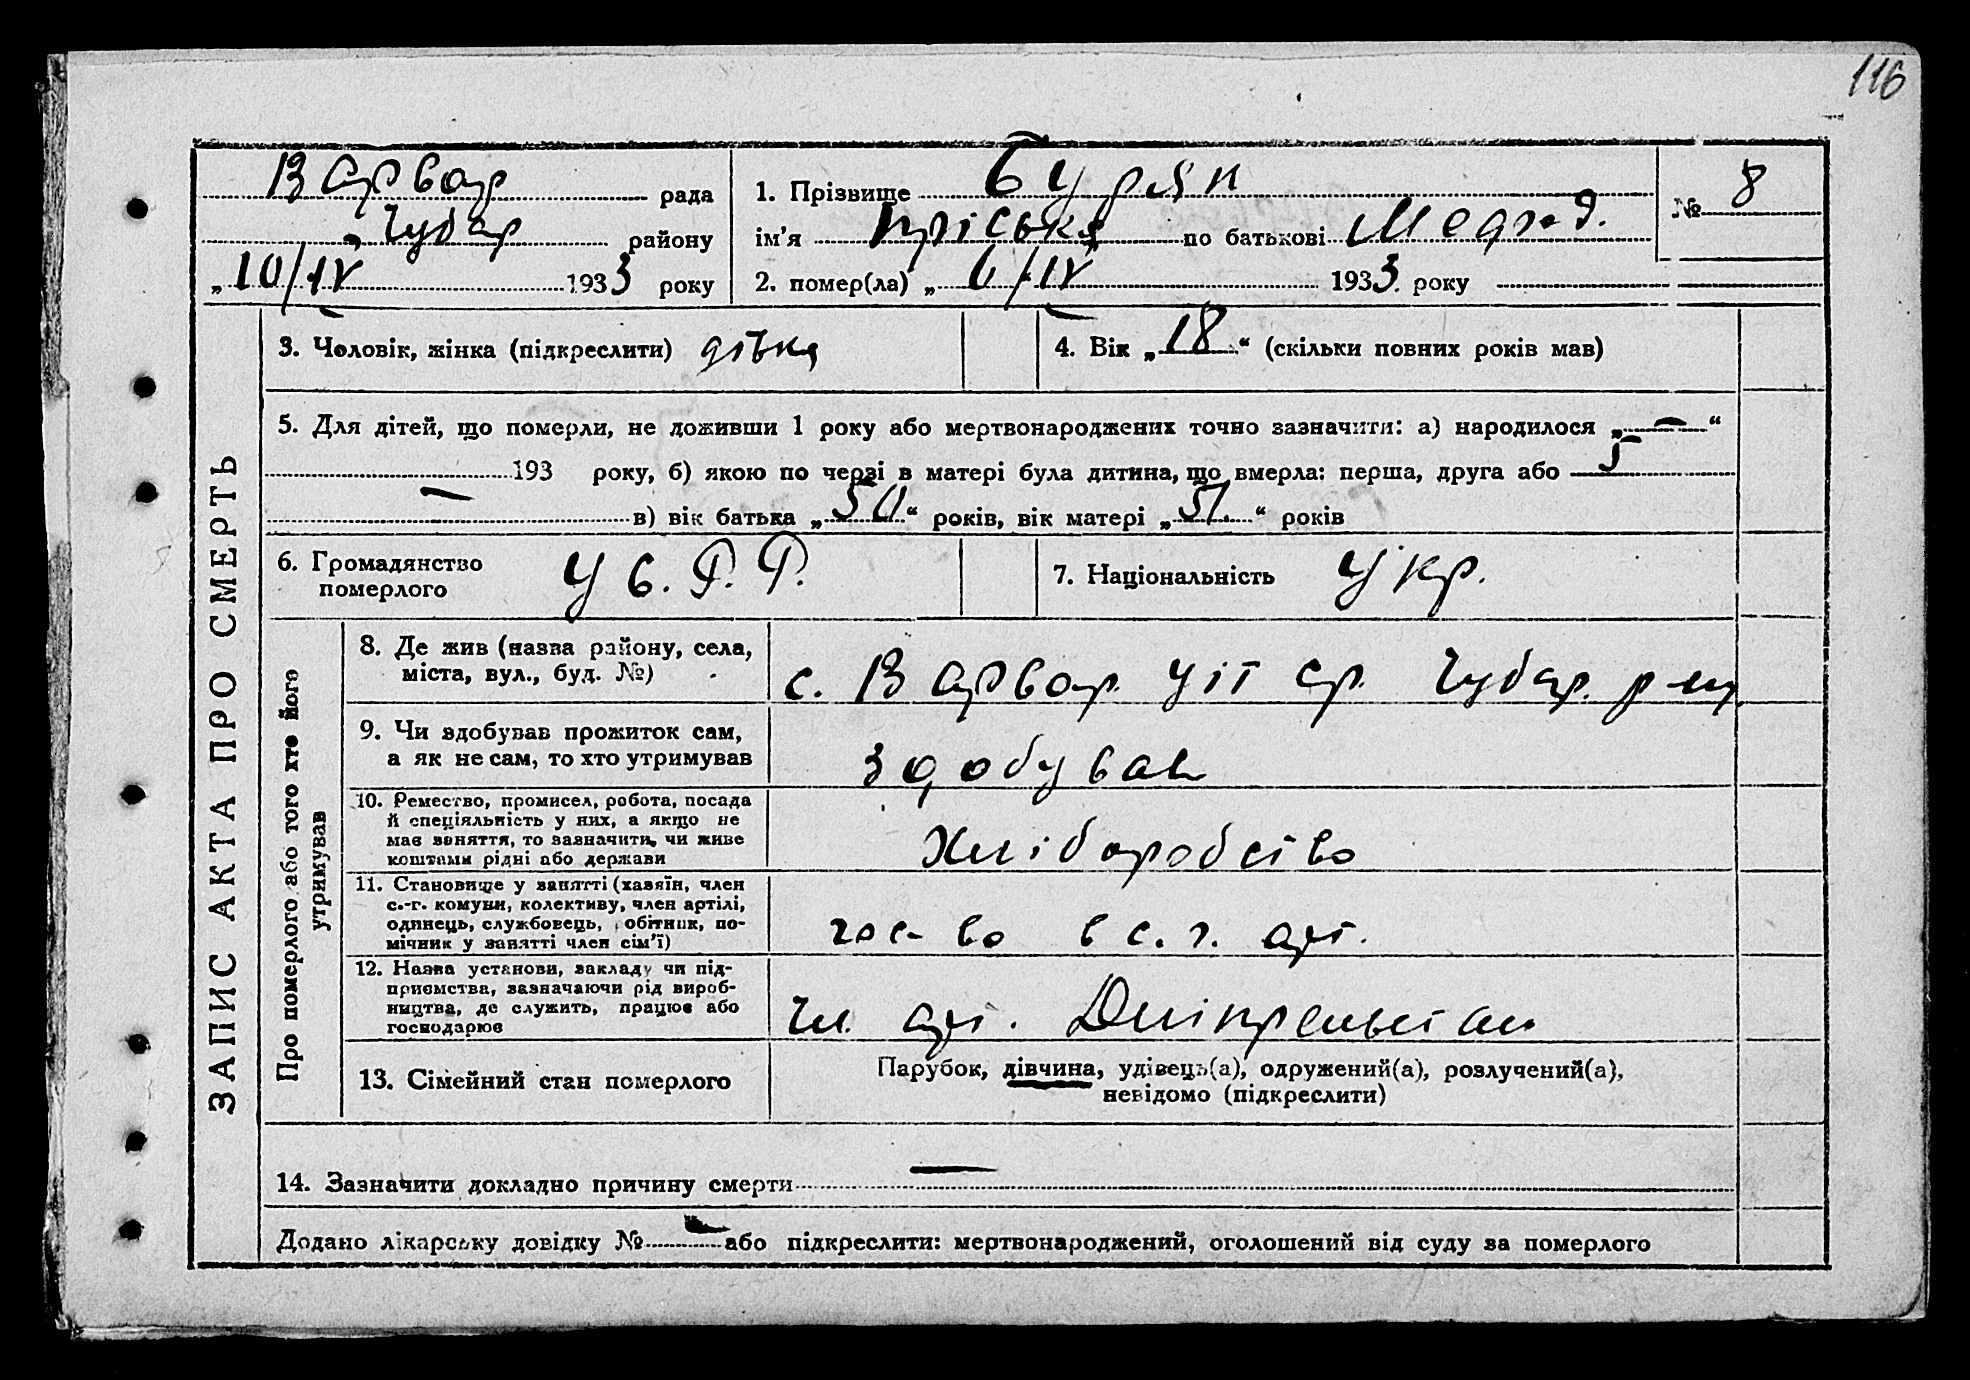 116
Варвар рада
Чубар району
„10/IV 1933 року
1. Прізвище Бурян
ім'я Пріська по батькові
2. помер(ла) „6/IV 1933 року
№ 8
ЗАПИС АКТА ПРО СМЕРТЬ
3. Чоловік, жінка (підкреслити) дівка
4. Вік „18“ (скільки повних років мав)
5. Для дітей, що померли, не доживши 1 року або мертвонароджених точно зазначити: а) народилося „—“
193 року, б) якою по черзі в матері була дитина, що вмерла: перша, друга або 5
— в) вік батька „50“ років, вік матері „51.“ років
6. Громадянство
померлого
У С. Р. Р.
7. Національність Укр.
Про померлого або того хто його
утримував
8. Де жив (назва району, села,
міста, вул., буд. №)
с. Варвар. Чубар. р-ну
9. Чи здобував прожиток сам,
а як не сам, то хто утримував
здобував
10. Ремество, промисел, робота, посада
й спеціяльність у них, а якщо не
має заняття, то зазначити, чи живе
коштами рідні або держави
Хліборобство
11. Становище у занятті (хазяїн, член
с.-г. комуни, колективу, член артілі,
одинець, службовець, обітник, по-
мічник у занятті член сім'ї)
гос-во в с. г. арт.
12. Назва установи, закладу чи під-
приємства, зазначаючи рід вироб-
ництва, де служить, працює або
господарює
Чл. арт. Дніпрельстан
13. Сімейний стан померлого
Парубок, дівчина, удівець(а), одружений(а), розлучений(а),
невідомо (підкреслити)
14. Зазначити докладно причину смерти —
Додано лікарську довідку № — або підкреслити: мертвонароджений, оголошений від суду за померлого